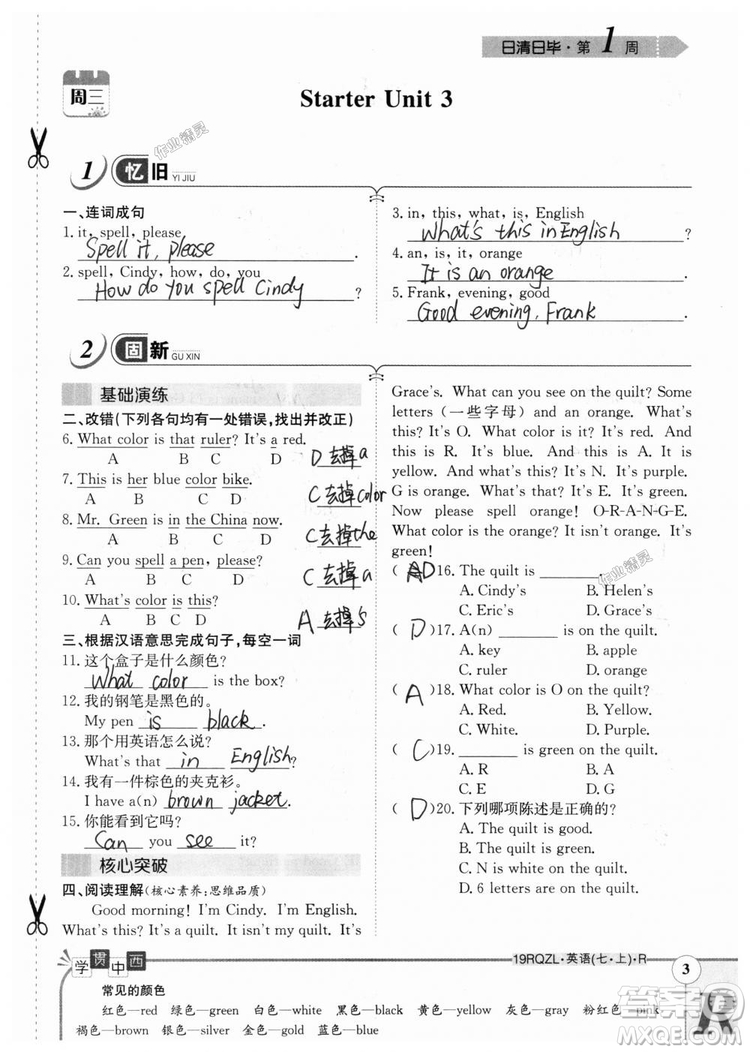 日清日毕·第1周
周三
Starter Unit 3
作业精灵
1 忆旧 YI JIU
一、连词成句
1. it, spell, please
Spell it, please.
2. spell, Cindy, how, do, you
How do you spell Cindy?
3. in, this, what, is, English
What's this in English?
4. an, is, it, orange
It is an orange.
5. Frank, evening, good
Good evening, Frank.
2 固新 GU XIN
基础演练
二、改错(下列各句均有一处错误,找出并改正)
6. What color is that ruler? It's a red.
A B C D D 去掉a
7. This is her blue color bike.
A B C D C 去掉color
8. Mr. Green is in the China now.
A B C D C 去掉the
9. Can you spell a pen, please?
A B C D C 去掉a
10. What's color is this?
A B C D A 去掉's
三、根据汉语意思完成句子,每空一词
11. 这个盒子是什么颜色?
What color is the box?
12. 我的钢笔是黑色的。
My pen is black.
13. 那个用英语怎么说?
What's that in English?
14. 我有一件棕色的夹克衫。
I have a(n) brown jacket.
15. 你能看到它吗?
Can you see it?
核心突破
四、阅读理解(核心素养:思维品质)
Good morning! I'm Cindy. I'm English.
What's this? It's a quilt. Is it Helen's quilt? No. It's
Grace's. What can you see on the quilt? Some
letters (一些字母) and an orange. What's
this? It's O. What color is it? It's red. And this
is R. It's blue. And this is A. It is
yellow. And what's this? It's N. It's purple.
G is orange. What's this? It's E. It's green.
Now please spell orange! O-R-A-N-G-E.
What color is the orange? It isn't red. It's
green!
( D )16. The quilt is ______.
A. Cindy's B. Helen's
C. Eric's D. Grace's
( D )17. A(n) ______ is on the quilt.
A. key B. apple
C. ruler D. orange
( A )18. What color is O on the quilt?
A. Red. B. Yellow.
C. White. D. Purple.
( C )19. ______ is green on the quilt.
A. R B. A
C. E D. G
( D )20. 下列哪项陈述是正确的?
A. The quilt is good.
B. The quilt is green.
C. N is white on the quilt.
D. 6 letters are on the quilt.
作业精灵
学贯中西
19RQZL·英语(七·上)·R
3
常见的颜色
红色—red 绿色—green 白色—white 黑色—black 黄色—yellow 灰色—gray 粉红色—pink
褐色—brown 银色—silver 金色—gold 蓝色—blue